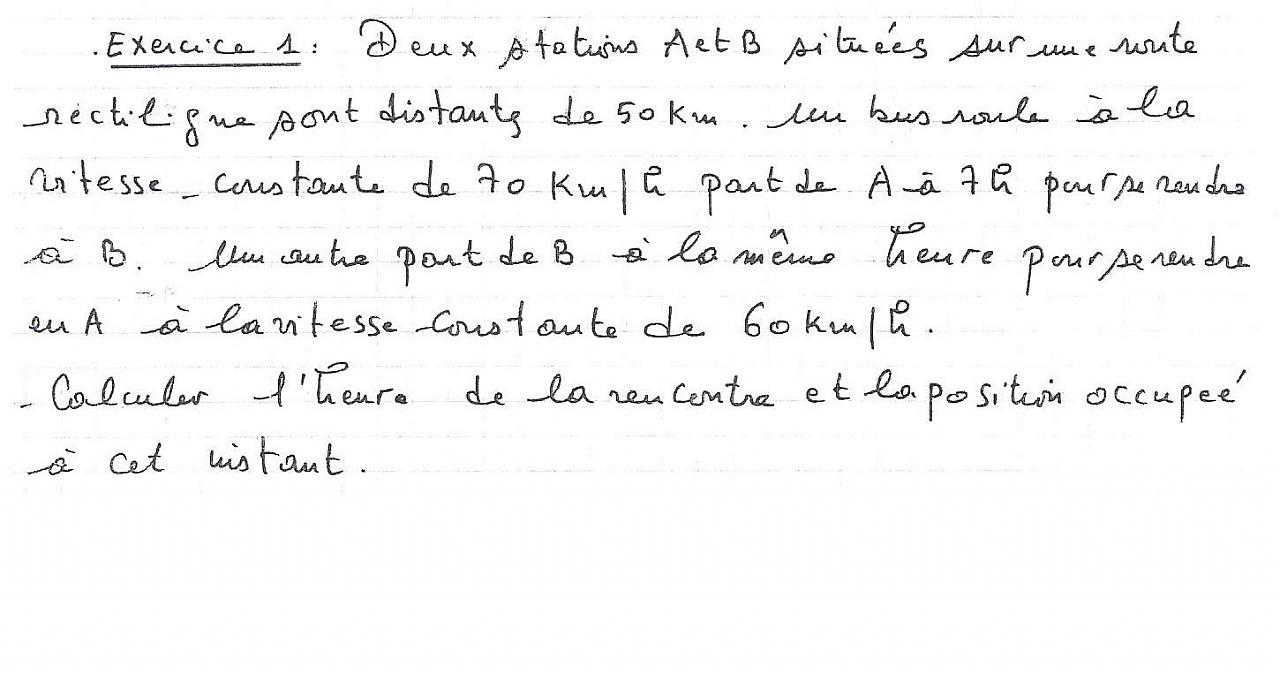 . Exercice 1 : Deux stations A et B situées sur une route
rectiligne sont distants de 50 Km . Un bus roule à la
vitesse constante de 70 Km/h part de A à 7h pour se rendre
à B. Un autre part de B à la même heure pour se rendre
en A à la vitesse constante de 60 km/h.
- Calculer l'heure de la rencontre et la position occupeé
à cet instant.